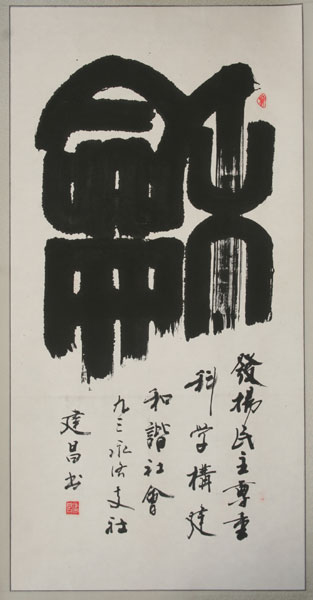 龢
發揚民主尊重
科学構建
和諧社會
九三永济支社
建昌书